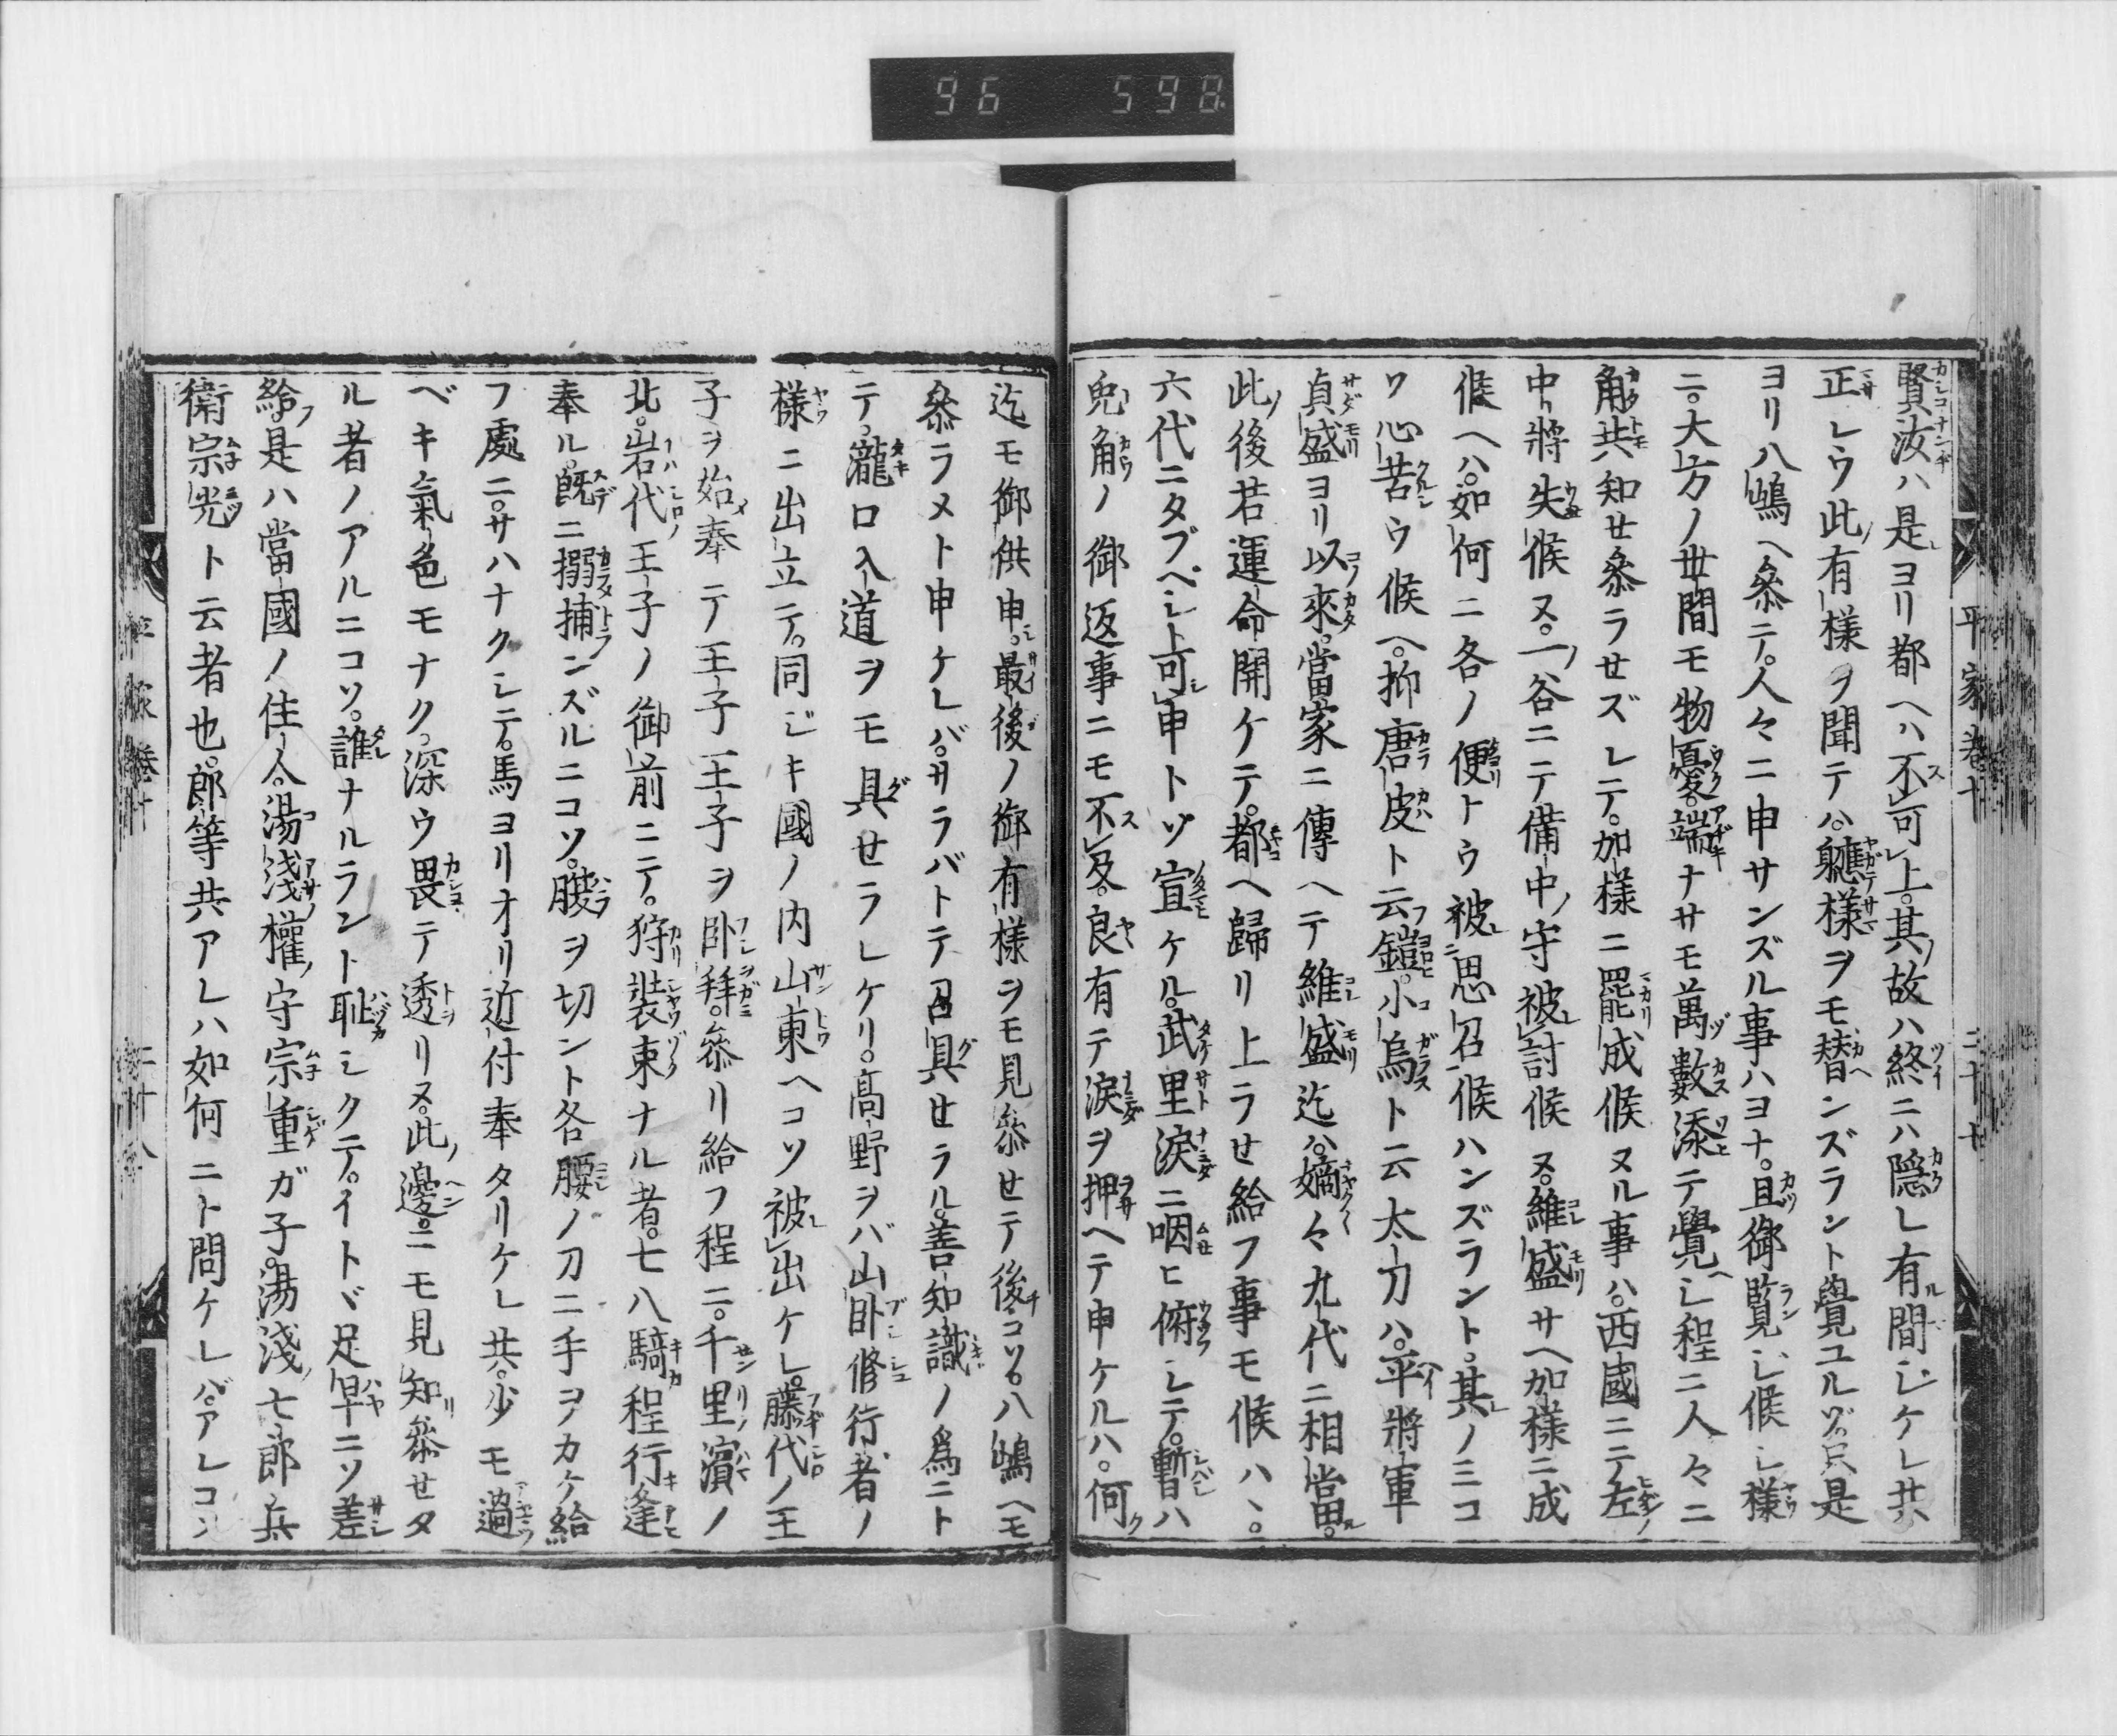 96 598
平家巻十 二十七
賢汝ハ是ヨリ都ヘハ不可上。其故ハ終ニハ隠レ有間ジケレ共
正シウ此有様ヲ聞テハ。軈様ヲモ替ンズラント覺ユルゾ。只是
ヨリ八嶋ヘ參テ。人々ニ申サンズル事ハヨナ。且御覧ジ候シ様
ニ。大方ノ世間モ物憂。端ナサモ萬數添テ覺ヘシ程ニ人々ニ
角共知セ參ラセズシテ。加様ニ罷成候ヌル事ハ。西國ニテ左
中將失候ヌ。一谷ニテ備中守被討候ヌ。維盛サヘ加様ニ成
候ヘハ。如何ニ各ノ便トウ被思召候ハンズラント。其ノミコ
ソ心苦ウ候ヘ。抑唐皮ト云鎧。小烏ト云太刀ハ。平將軍
貞盛ヨリ以來。當家ニ傳ヘテ維盛迄ハ。嫡々九代ニ相當。
此後若運命開ケテ。都ヘ歸リ上ラせ給フ事モ候ハヽ。
六代ニタブベシト可申トゾ宣ケル。武里淚ニ咽ヒ俯シテ。暫ハ
兎角ノ御返事ニモ不及。良有テ淚ヲ押ヘテ申ケルハ。何
迄モ御供申。最後ノ御有様ヲモ見參せテ後コソ。八嶋ヘモ
參ラメト申ケレバ。サラバトテ召具せラル。善知識ノ爲ニト
テ。瀧口入道ヲモ具せラレケリ。髙野ヲバ山卧修行者ノ
様ニ出立テ。同ジキ國ノ内山東ヘコソ被出ケレ。藤代ノ王
子ヲ始奉テ王子王子ヲ卧拜。參リ給フ程ニ。千里濱ノ
北。岩代王子ノ御前ニテ。狩裝束ナル者。七八騎程行逢
奉ル。既ニ搦捕ンズルニコソ。腹ヲ切ント各腰ノ刀ニ手ヲカケ給
フ處ニ。サハナクシテ。馬ヨリオリ近付奉タリケレ共。少モ過
ベキ氣色モナク。深ウ畏テ透リヌ。此邊ニモ見知參せタ
ル者ノアルニコソ。誰ナルラント恥シクテ。イトヾ足早ニソ差
給。是ハ當國ノ住人。湯淺權守宗重ガ子。湯淺七郎兵
衛宗光ト云者也。郎等共アレハ如何ニト問ケレバ。アレコソ
二十八